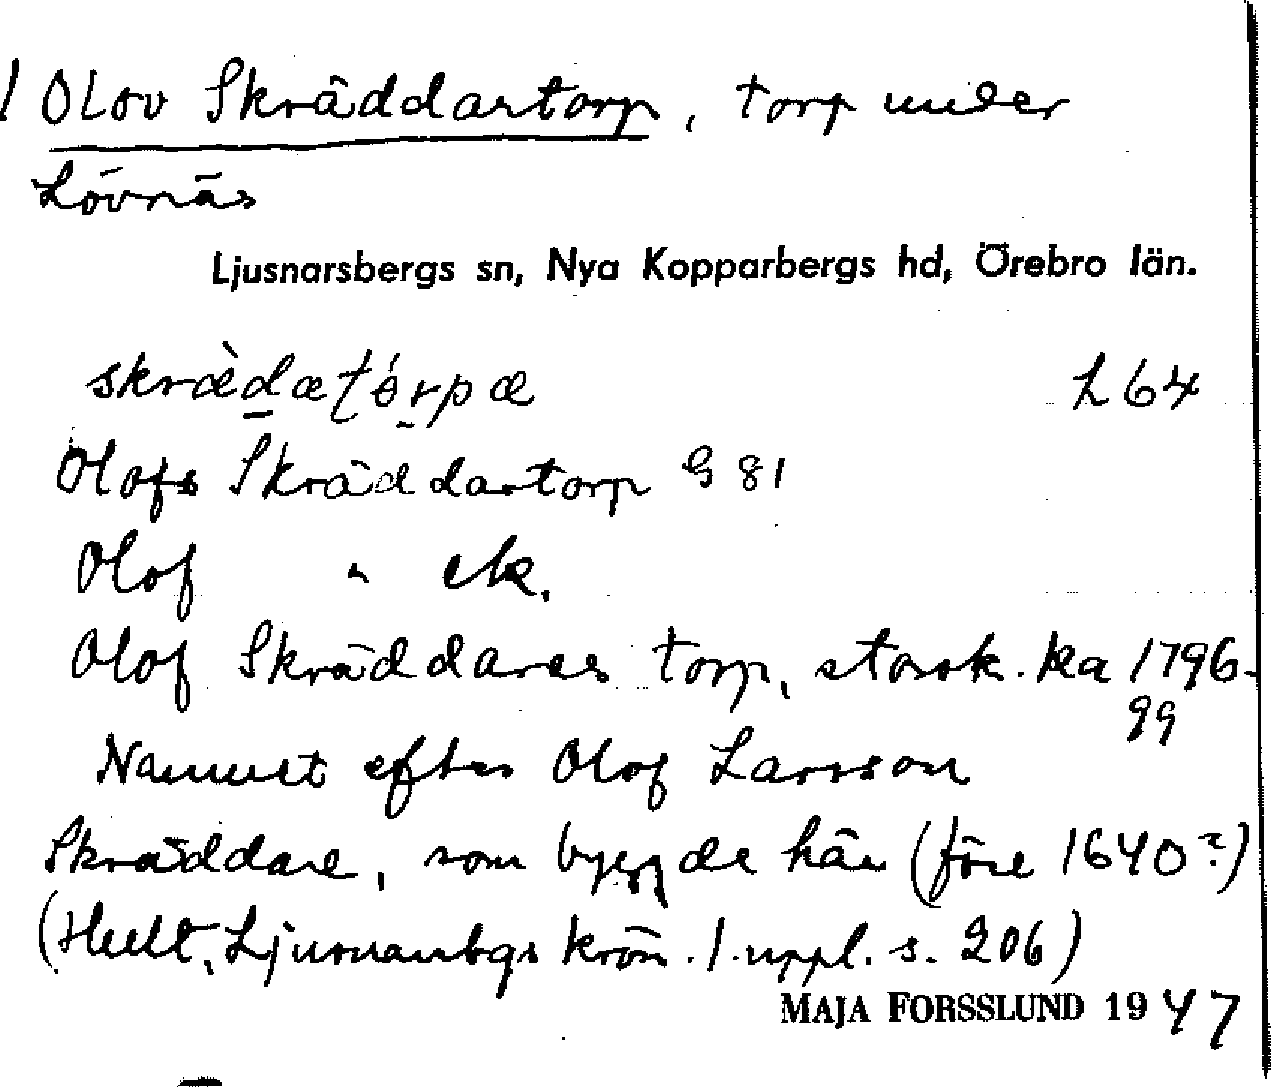 1 Olov Skräddartorp, torp under
Lövnäs
Ljusnarsbergs sn, Nya Kopparbergs hd, Örebro län.
skrædætórpæ L 64
Olofs Skräddartorp G 81
Olof " ek.
Olof Skräddares torp, storsk. ka 1796-
99
Namnet efter Olof Larsson
Skräddare, som byggde här (före 1640?)
(Hult, Ljusnarsbgs krön. 1. uppl. s. 206)
MAJA FORSSLUND 1947